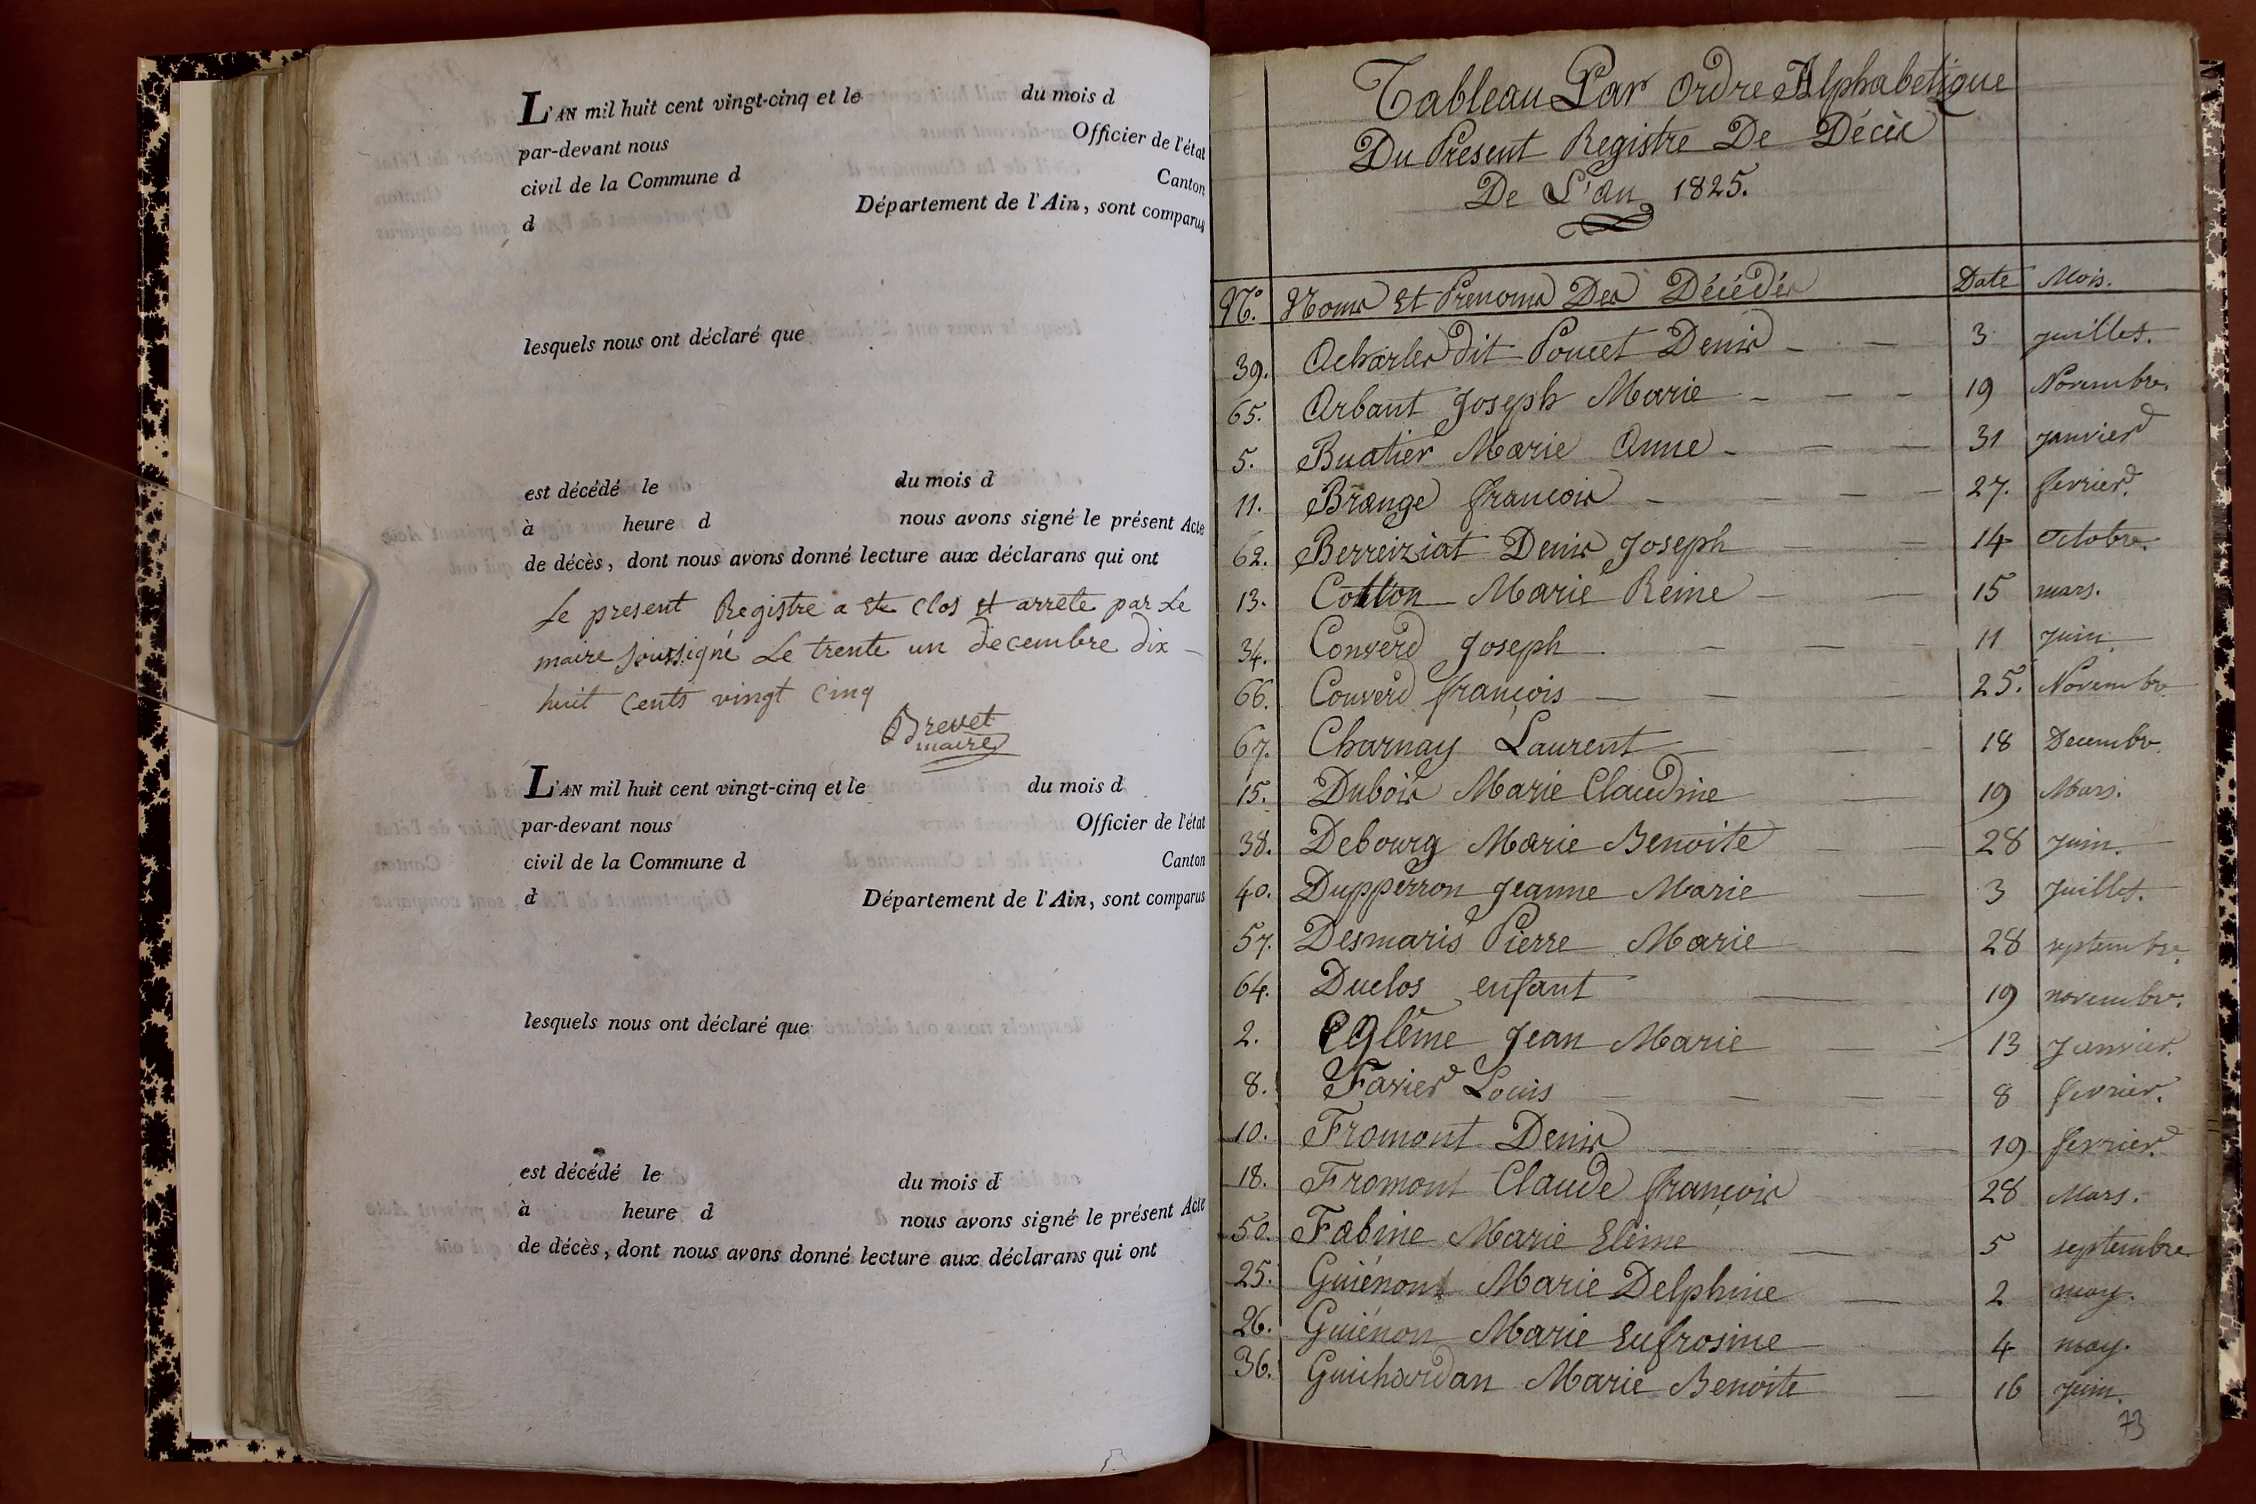 L'AN mil huit cent vingt-cinq et le du mois d
par-devant nous Officier de l'état
civil de la Commune d Canton
d Département de l'Ain, sont comparus
lesquels nous ont déclaré que
est décédé le du mois d
à heure d nous avons signé le présent Acte
de décès, dont nous avons donné lecture aux déclarans qui ont
Le present Registre a ete clos et arrete par Le
maire soussigné Le trente un decembre dix
huit Cents vingt Cinq
Brevet
maire
L'AN mil huit cent vingt-cinq et le du mois d
par-devant nous Officier de l'état
civil de la Commune d Canton
d Département de l'Ain, sont comparus
lesquels nous ont déclaré que
est décédé le du mois d
à heure d nous avons signé le présent Acte
de décès, dont nous avons donné lecture aux déclarans qui ont
Tableau Par Ordre Alphabetique
Du Present Registre De Décès
De L'an 1825.
N.º Noms Et Prenoms Des Décédés Date Mois.
39. Acharles dit Poncet Denis 3 juillet.
65. Arbant Joseph Marie 19 Novembre.
5. Buatier Marie Anne 31 janvier
11. Brange francois 27. fevrier.
62. Berreiziat Denis Joseph 14 Octobre.
13. Cotton Marie Reine 15 mars.
34. Converd Joseph 11 juin.
66. Converd françois 25. Novembre.
67. Charnay Laurent 18 Decembre.
15. Dubois Marie Claudine 19 Mars.
38. Debourg Marie Benoite 28 juin.
40. Dupperron Jeanne Marie 3 juillet.
57. Desmaris Pierre Marie 28 septembre.
64. Duclos enfant 19 novembre.
2. Eglème Jean Marie 13 Janvier.
8. Favier Louis 8 fevrier.
10. Fromont Denis 19 fevrier.
18. Fromont Claude françois 28 Mars.
50. Fabine Marie Elème 5 septembre
25. Guiénont Marie Delphine 2 may.
26. Guiénon Marie Eufrosine 4 may.
36. Guichardan Marie Benoite 16 Juin.
73